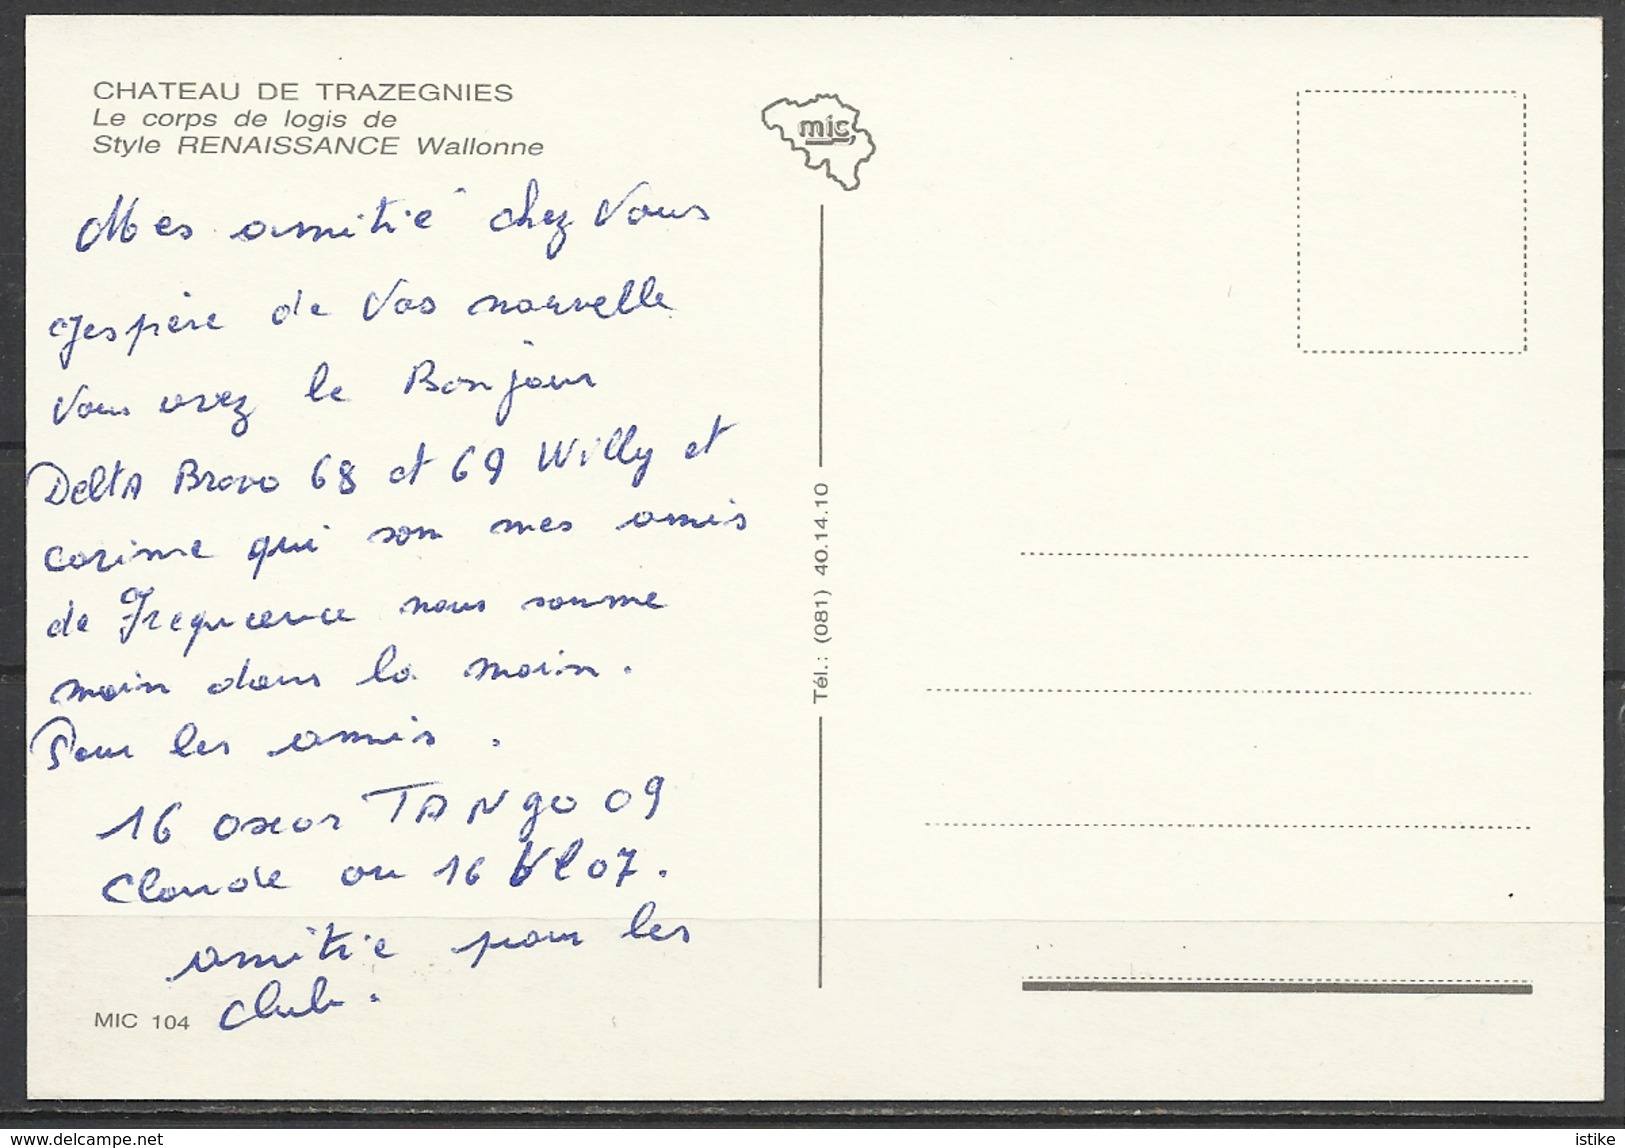 CHATEAU DE TRAZEGNIES
Le corps de logis de
Style RENAISSANCE Wallonne
mic
Mes amitié chez Vous
J'espère de Vos nouvelle
Vous avez le Bonjour
DeltA Bravo 68 et 69 Willy et
Corinne qui son mes amis
de Frequence nous somme
main dans la main.
Pour les amis.
16 oscar TANgo 09
Claude ou 16 07.
amitié pour les
club.
MIC 104
Tél.: (081) 40.14.10
www.delcampe.net
istike